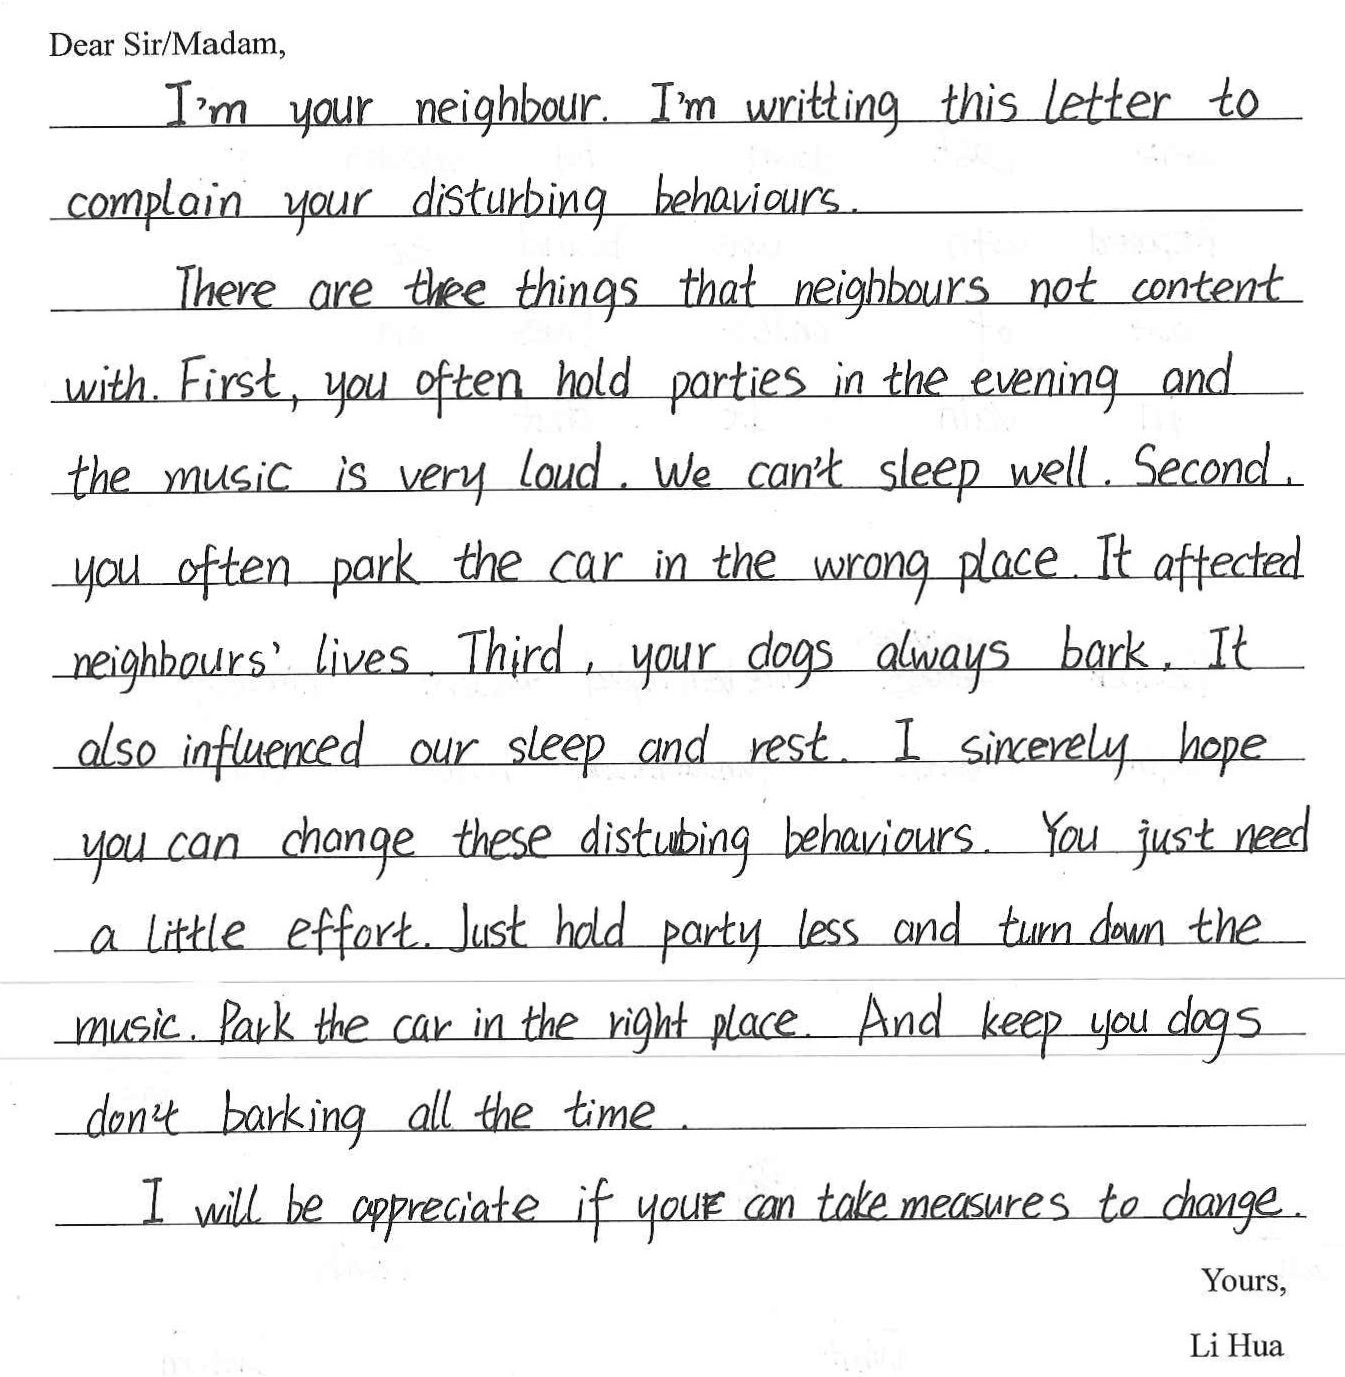 Dear Sir/Madam,
I'm your neighbour. I'm writting this letter to
complain your disturbing behaviours.
There are thee things that neighbours not content
with. First, you often hold parties in the evening and
the music is very loud. We can't sleep well. Second,
you often park the car in the wrong place. It affected
neighbours' lives. Third, your dogs always bark. It
also influenced our sleep and rest. I sincerely hope
you can change these distubing behaviours. You just need
a little effort. Just hold party less and turn down the
music. Park the car in the right place. And keep you dogs
don't barking all the time.
I will be appreciate if you can take measures to change.
Yours,
Li Hua